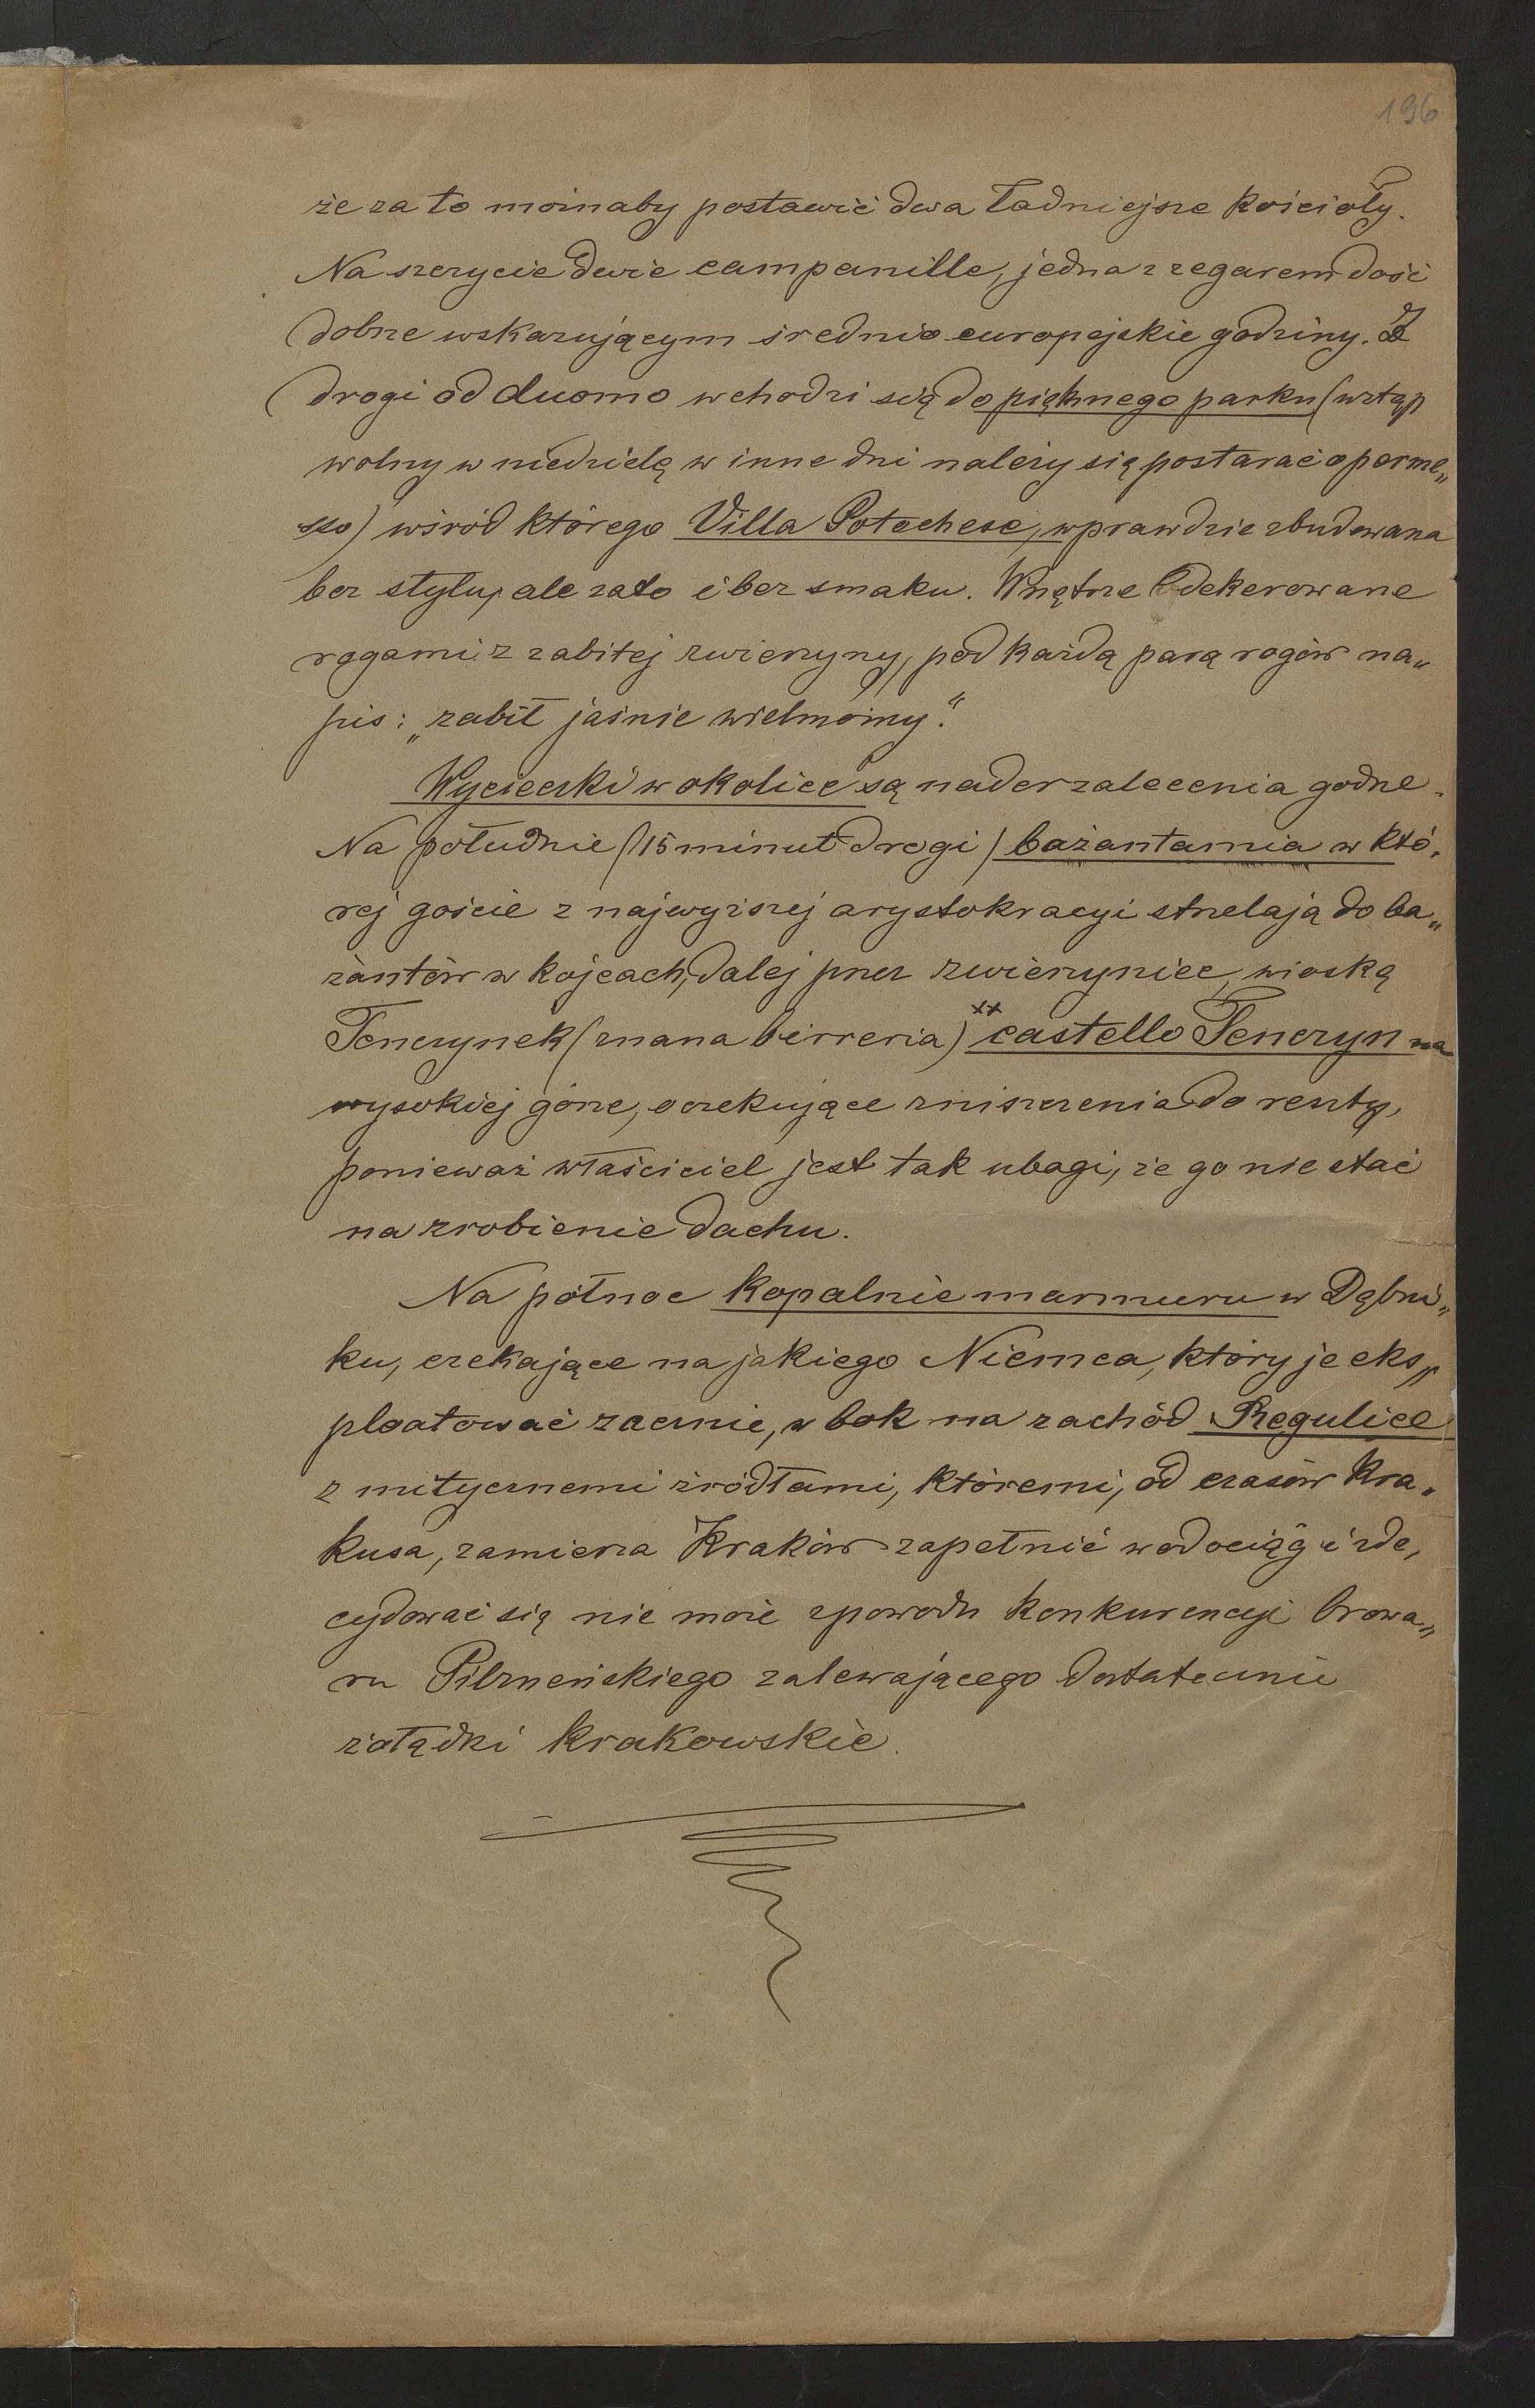 196
że za to możnaby postawić dwa ładniejsze kościoły.
Na szczycie dwie campanille, jedna z zegarem dość
dobrze wskazującym średnio europejskie godziny. Z
drogi od duomo wchodzi się do pięknego parku (wstęp
wolny w niedzielę w inne dni należy się postarać o perme„
sso) wśród którego Villa Potochese, wprawdzie zbudowana
bez stylu, ale zato i bez smaku. Wnętrze dekorowane
rogami z zabitej zwierzyny, pod każdą parą rogów na„
pis: „zabił jaśnie wielmożny."
Wycieczki w okolice są nader zalecenia godne.
Na południe (15 minut drogi) bażantarnia w któ„
rej goście z najwyższej arystokracyi strzelają do ba„
żantów w kojcach, dalej przez zwierzyniec, wioską
Tenczynek (znana birreria) xx castello Tenczyn na
wysokiej górze, oczekujące zniszczenia do reszty,
ponieważ właściciel jest tak ubogi, że go nie stać
na zrobienie dachu.
Na północ kopalnie marmuru w Dębni„
ku, czekające na jakiego Niemca, który je eks„
ploatować zacznie, w bok na zachód Regulice
z mitycznemi źródłami, któremi, od czasów Kra„
kusa, zamierza Kraków zapełnić wodociąg i zde„
cydować się nie może zpowodu konkurencyi browa„
ru Pilzneńskiego zalewającego dostatecznie
żołądki krakowskie.